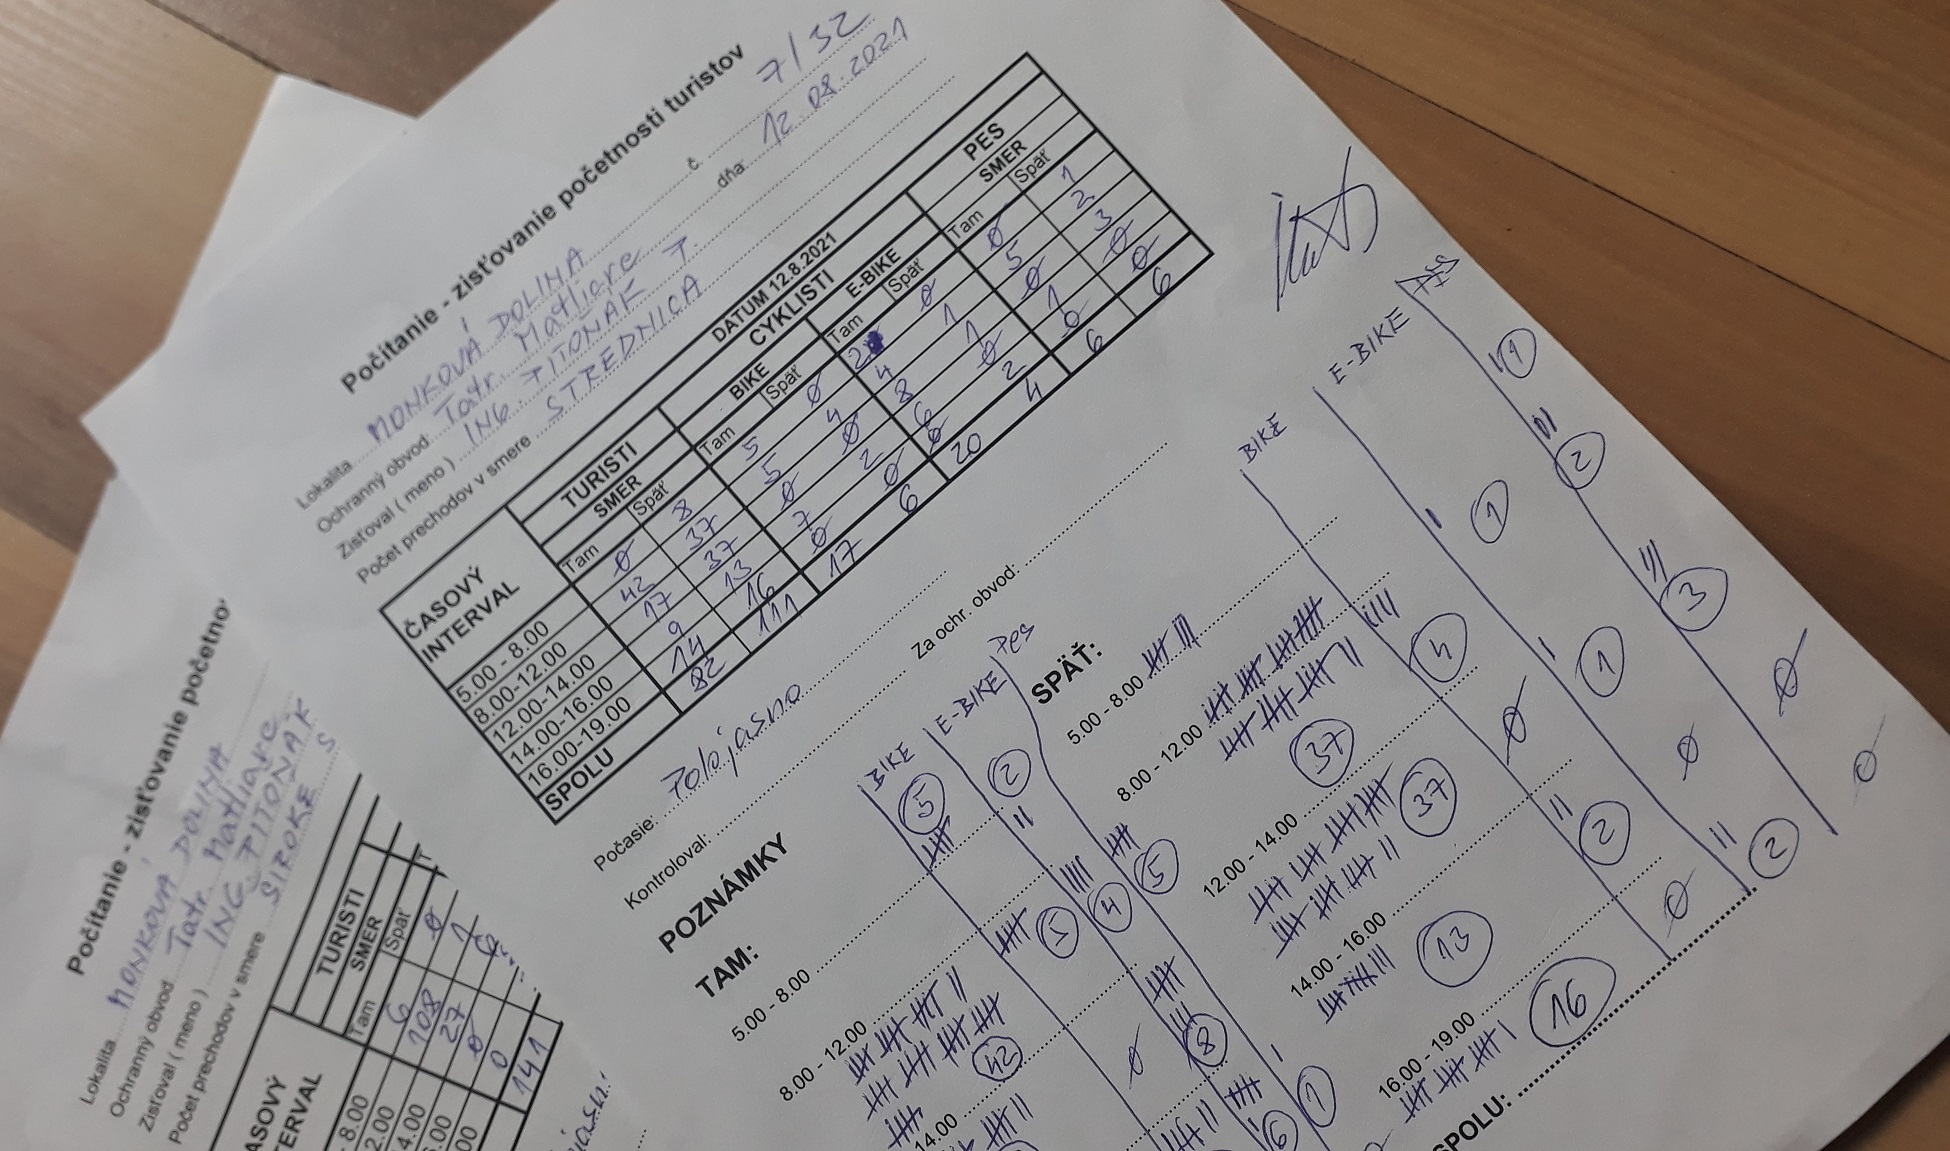 Počítanie - zisťovanie početnosti turistov
č. 7/32
Lokalita MONKOVÁ DOLINA dňa: 12.08.2021
Ochranný obvod Tatr. Matliare
Zisťoval ( meno ) ING. PITOŇÁK P.
Počet prechodov v smere STREDNICA
ČASOVÝ INTERVAL
DATUM 12.8.2021
TURISTI CYKLISTI PES
SMER BIKE E-BIKE SMER
Tam Späť Tam Späť Tam Späť Tam Späť
5.00 - 8.00 0 8 5 0 2 0 0 1
8.00-12.00 42 37 5 4 4 1 5 2
12.00-14.00 17 37 0 0 8 1 0 3
14.00-16.00 9 13 7 2 6 0 1 0
16.00-19.00 14 16 0 0 0 2 0 0
SPOLU 82 111 17 6 20 4 6 6
Počasie: Polojasno
Kontroloval: Za ochr. obvod:
POZNÁMKY
TAM: BIKE E-BIKE Pes
5.00 - 8.00 5 2
8.00 - 12.00 42 5 4 5
14.00 0 8
6 1
SPÄŤ: BIKE E-BIKE PES
5.00 - 8.00 1
8.00 - 12.00 37 4 1 2
12.00 - 14.00 37 0 1 3
14.00 - 16.00 13 2 0 0
16.00 - 19.00 16 0 2 0
SPOLU:
Počítanie - zisťovanie početno
Lokalita MONKOVÁ DOLINA
Ochranný obvod Tatr. Matliare
Zisťoval ( meno ) ING. PITOŇÁK
Počet prechodov v smere ŠIROKÉ S
ASOVÝ
TERVAL
TURISTI
SMER
Tam Späť
8.00 6 0
2.00 108 1
4.00 27
6.00 0
00 0
141